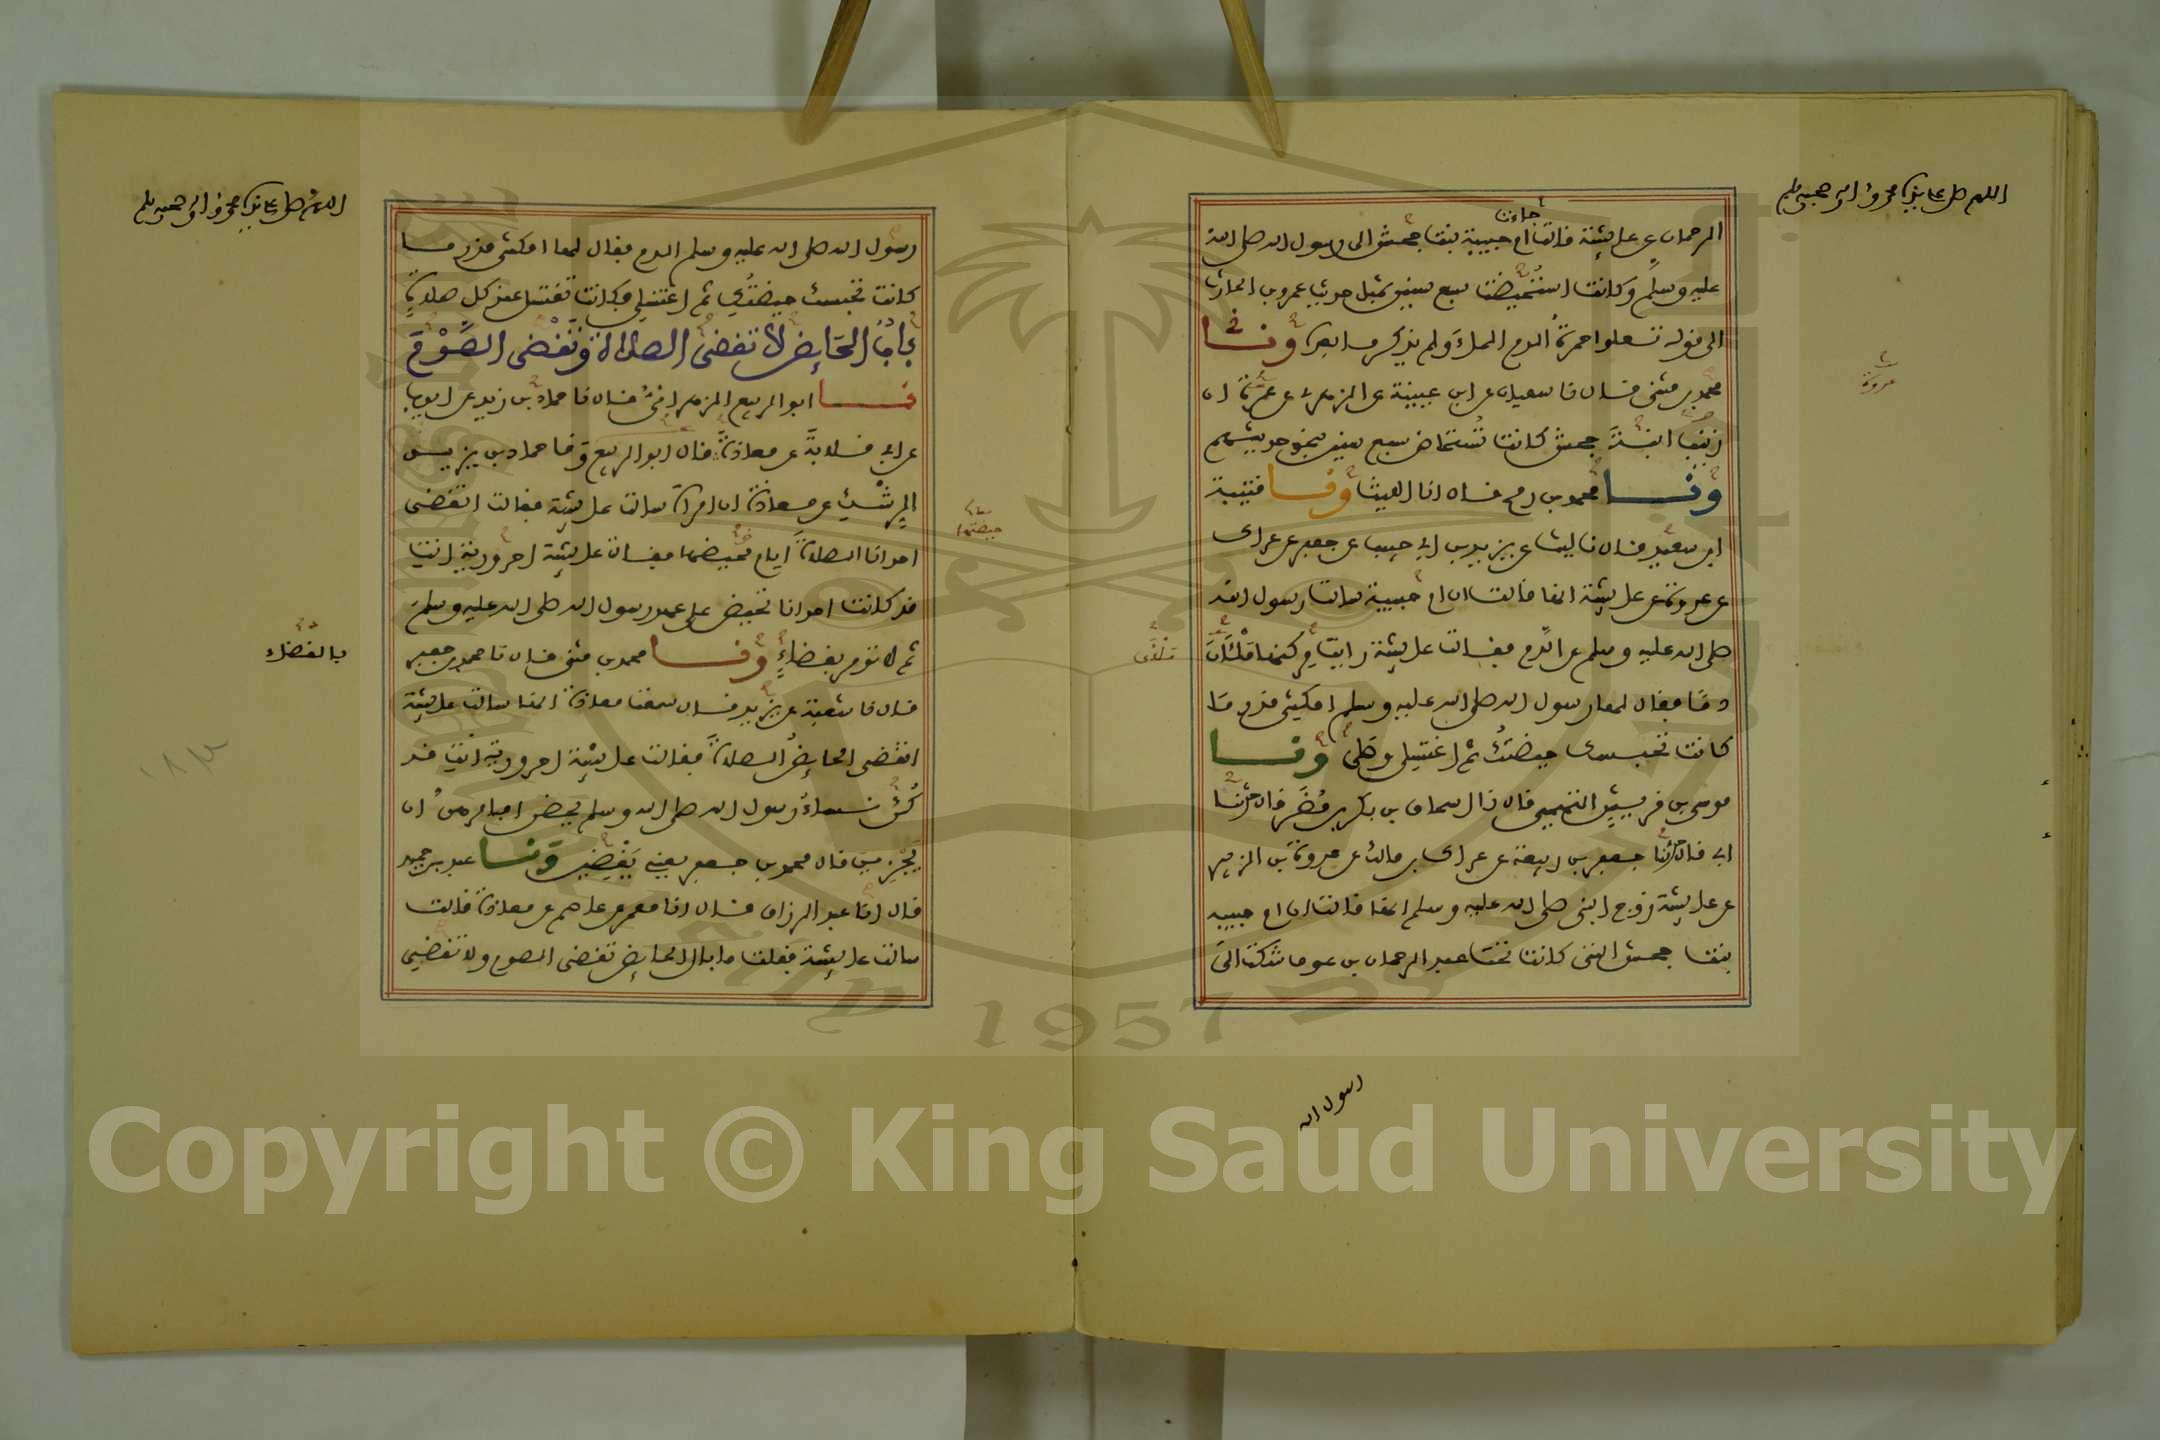 اللهم صل على سيدنا محمد وءاله وصحبه وسلم
جاءت
الرحمان عن عايشة قالت ام حبيبة بنت جحش الى رسول الله صلى الله
عليه وسلم وكانت استحيضت سبع سنين بمثل حديث عمرو بن الحارث
الى قوله تعلوا حمرة الدم الماء ولم يذكر ما بعده وثنا
محمد بن مثنى قال نا سفيان بن عيينة عن الزهري عن عمرة ان
زينب ابنة جحش كانت تستحاض سبع سنين بنحو حديثهم
وثنا محمد بن رمح قال انا الليث وثنا قتيبة
ابن سعيد قال نا ليث عن يزيد بن ابي حبيب عن جعفر عن عراك
عن عروة عن عايشة انها قالت ان ام حبيبة سالت رسول الله
صلى الله عليه وسلم عن الدم فقالت عايشة رايت مركنها ملآن
دما فقال لها رسول الله صلى الله عليه وسلم امكثي قدر ما
كانت تحبسك حيضتك ثم اغتسلي وصلي وثنا
موسى بن قريش التميمي قال نا اسحاق بن بكر بن مضر قال حدثنا
ابي قال حدثنا جعفر بن ربيعة عن عراك بن مالك عن عروة بن الزبير
عن عايشة زوج النبي صلى الله عليه وسلم انها قالت ان ام حبيبة
بنت جحش التي كانت تحت عبد الرحمان بن عوف شكت الى
عروة
رسول الله
اللهم صل على سيدنا محمد وءاله وصحبه وسلم
رسول الله صلى الله عليه وسلم الدم فقال لها امكثي قدر ما
كانت تحبسك حيضتك ثم اغتسلي فكانت تغتسل عند كل صلاة
باب الحايض لا تقضي الصلاة وتقضي الصوم
ثنا ابو الربيع الزهراني قال نا حماد بن زيد عن ايوب
عن ابي قلابة عن معاذة قال ابو الربيع ونا حماد بن يزيد
الرشك عن معاذة ان امراة سالت عايشة فقالت اتقضي
احدانا الصلاة ايام محيضها فقالت عايشة احرورية انت
قد كانت احدانا تحيض على عهد رسول الله صلى الله عليه وسلم
ثم لا تومر بقضاء وثنا محمد بن مثنى قال نا محمد بن جعفر
قال نا شعبة عن يزيد قال سمعت معاذة انها سالت عايشة
اتقضي الحايض الصلاة فقالت عايشة احرورية انت قد
كن نساء رسول الله صلى الله وسلم يحضن افامرهن ان
يجزين قال محمد بن جعفر يعني يقضين وثنا عبد بن حميد
قال انا عبد الرزاق قال انا معمر عن عاصم عن معاذة قالت
سالت عايشة فقلت ما بال الحايض تقضي الصوم ولا تقضي
حيضتها
بالقضاء
Copyright © King Saud University
1957